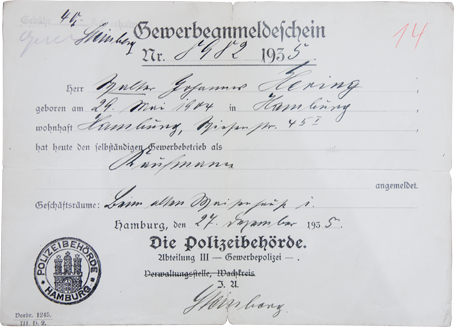 40.
Steinberg
14
Gewerbeanmeldeschein
Nr. 8982 1935.
Herr Walter Johannes Hering
geboren am 29. Mai 1904 in Hamburg
wohnhaft Hamburg, Wiesenstr. 45 I
hat heute den selbständigen Gewerbebetrieb als
Kaufmann
angemeldet.
Geschäftsräume: Beim alten Waisenhause 1.
Hamburg, den 27. Dezember 1935.
Die Polizeibehörde.
Abteilung III — Gewerbepolizei — .
Verwaltungsstelle, Wachkreis
I. A.
Steinberg.
POLIZEIBEHÖRDE
HAMBURG
Vordr. 1245.
III D. 2.